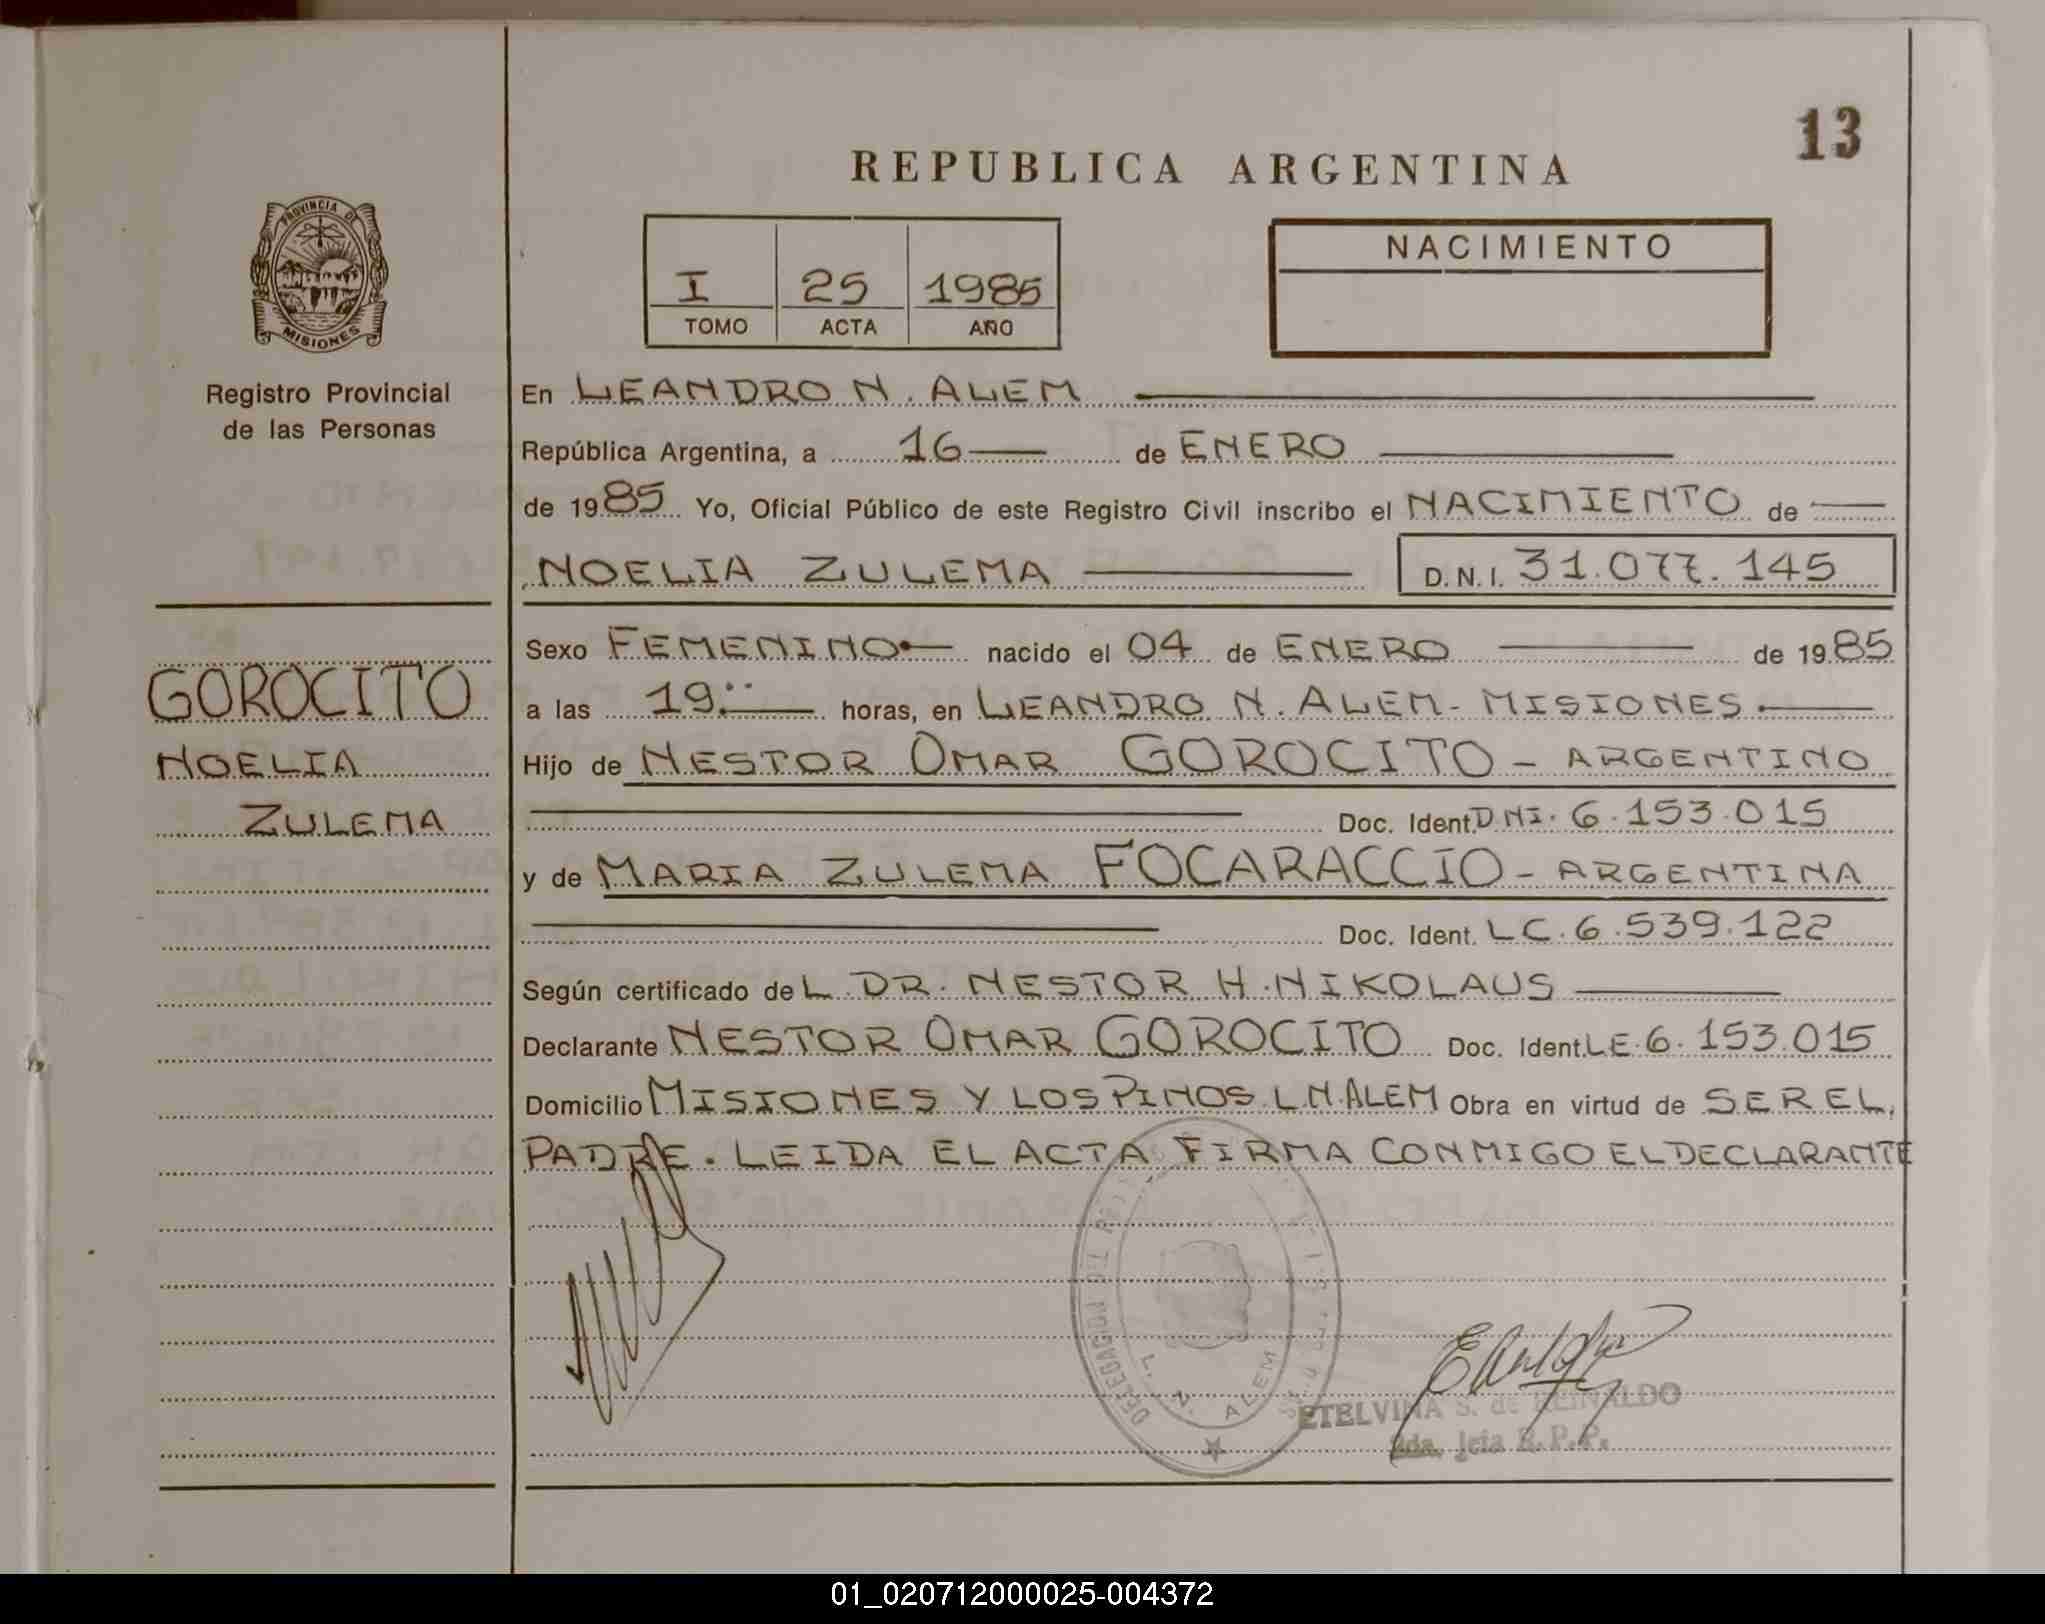 13
REPUBLICA ARGENTINA
PROVINCIA DE
MISIONES
Registro Provincial
de las Personas
I 25 1985
TOMO ACTA AÑO
NACIMIENTO
En LEANDRO N. ALEM
República Argentina, a 16 de ENERO
de 1985 Yo, Oficial Público de este Registro Civil inscribo el NACIMIENTO de
NOELIA ZULEMA D.N.I. 31.077.145
GOROCITO
NOELIA
ZULEMA
Sexo FEMENINO nacido el 04 de ENERO de 1985
a las 19: horas, en LEANDRO N. ALEM - MISIONES.
Hijo de NESTOR OMAR GOROCITO - ARGENTINO
Doc. Ident. DNI. 6.153.015
y de MARIA ZULEMA FOCARACCIO - ARGENTINA
Doc. Ident. LC. 6.539.122
Según certificado de L DR. NESTOR H. NIKOLAUS
Declarante NESTOR OMAR GOROCITO Doc. Ident. LE. 6.153.015
Domicilio MISIONES Y LOS PINOS L.N.ALEM Obra en virtud de SER EL
PADRE. LEIDA EL ACTA FIRMA CONMIGO EL DECLARANTE
L. N. ALEM
ETELVINA S. de REINALDO
2da. Jefa R.P.P.
01_020712000025-004372